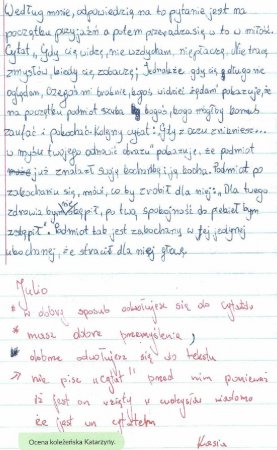 Według mnie, odpowiedzią na to pytanie jest na
początku przyjaźń a potem przeradza się to w miłość.
Cytat „Gdy cię widzę, nie wzdycham, nie płaczę, Nie tracę
zmysłów, kiedy cię zobaczę; Jednakże gdy cię długo nie
oglądam, Czegoś mi braknie, kogoś widzieć żądam" pokazuje, że
na początku podmiot szuka kogoś, kogo mógłby komuś
zaufać i pokochać. Kolejny cytat: „Gdy z oczu znikniesz...
w myślu twojego odnowić obrazu" pokazuje, że podmiot
już znalazł swoją kochankę i ją kocha. Podmiot po
zakochaniu się, mówi, co by zrobił dla niej: „Dla twego
zdrowia bym nie skąpił, po twą spokojność do piekieł bym
zstąpił". Podmiot tak jest zakochany w tej jedynej
ukochanej, że stracił dla niej głowę.
Julio
* w dobry sposób odwołujesz się do cytatów
* masz dobre przemyślenia,
dobrze odwołujesz się do tekstu
→ nie pisz "cytat" przed nim ponieważ
iż jest on wzięty w cudzysłów wiadomo
że jest on cytatem
Kasia
Ocena koleżeńska Katarzyny.